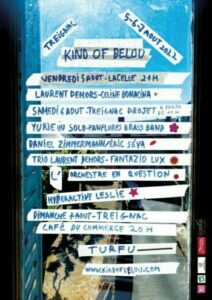 TREIGNAC
5-6-7 AOUT 2022
KIND OF BELOU
VENDREDI 5 AOUT - LACELLE 21H
LAURENT DEHORS - CELINE BONACINA
SAMEDI 6 AOUT - TREIGNAC PROJET A PARTIR DE
YURIE HU SOLO - VANFLORED BRASS BAND
DANIEL ZIMMERMANN / ÉRIC SÉVA
TRIO LAURENT DEHORS - FANTAZIO LUX
L'ORCHESTRE EN QUESTION
HYPERACTIVE LESLIE
DIMANCHE 7 AOUT - TREIGNAC
CAFÉ DU COMMERCE 20H
TURFU
WWW.KINDOFBELOU.COM